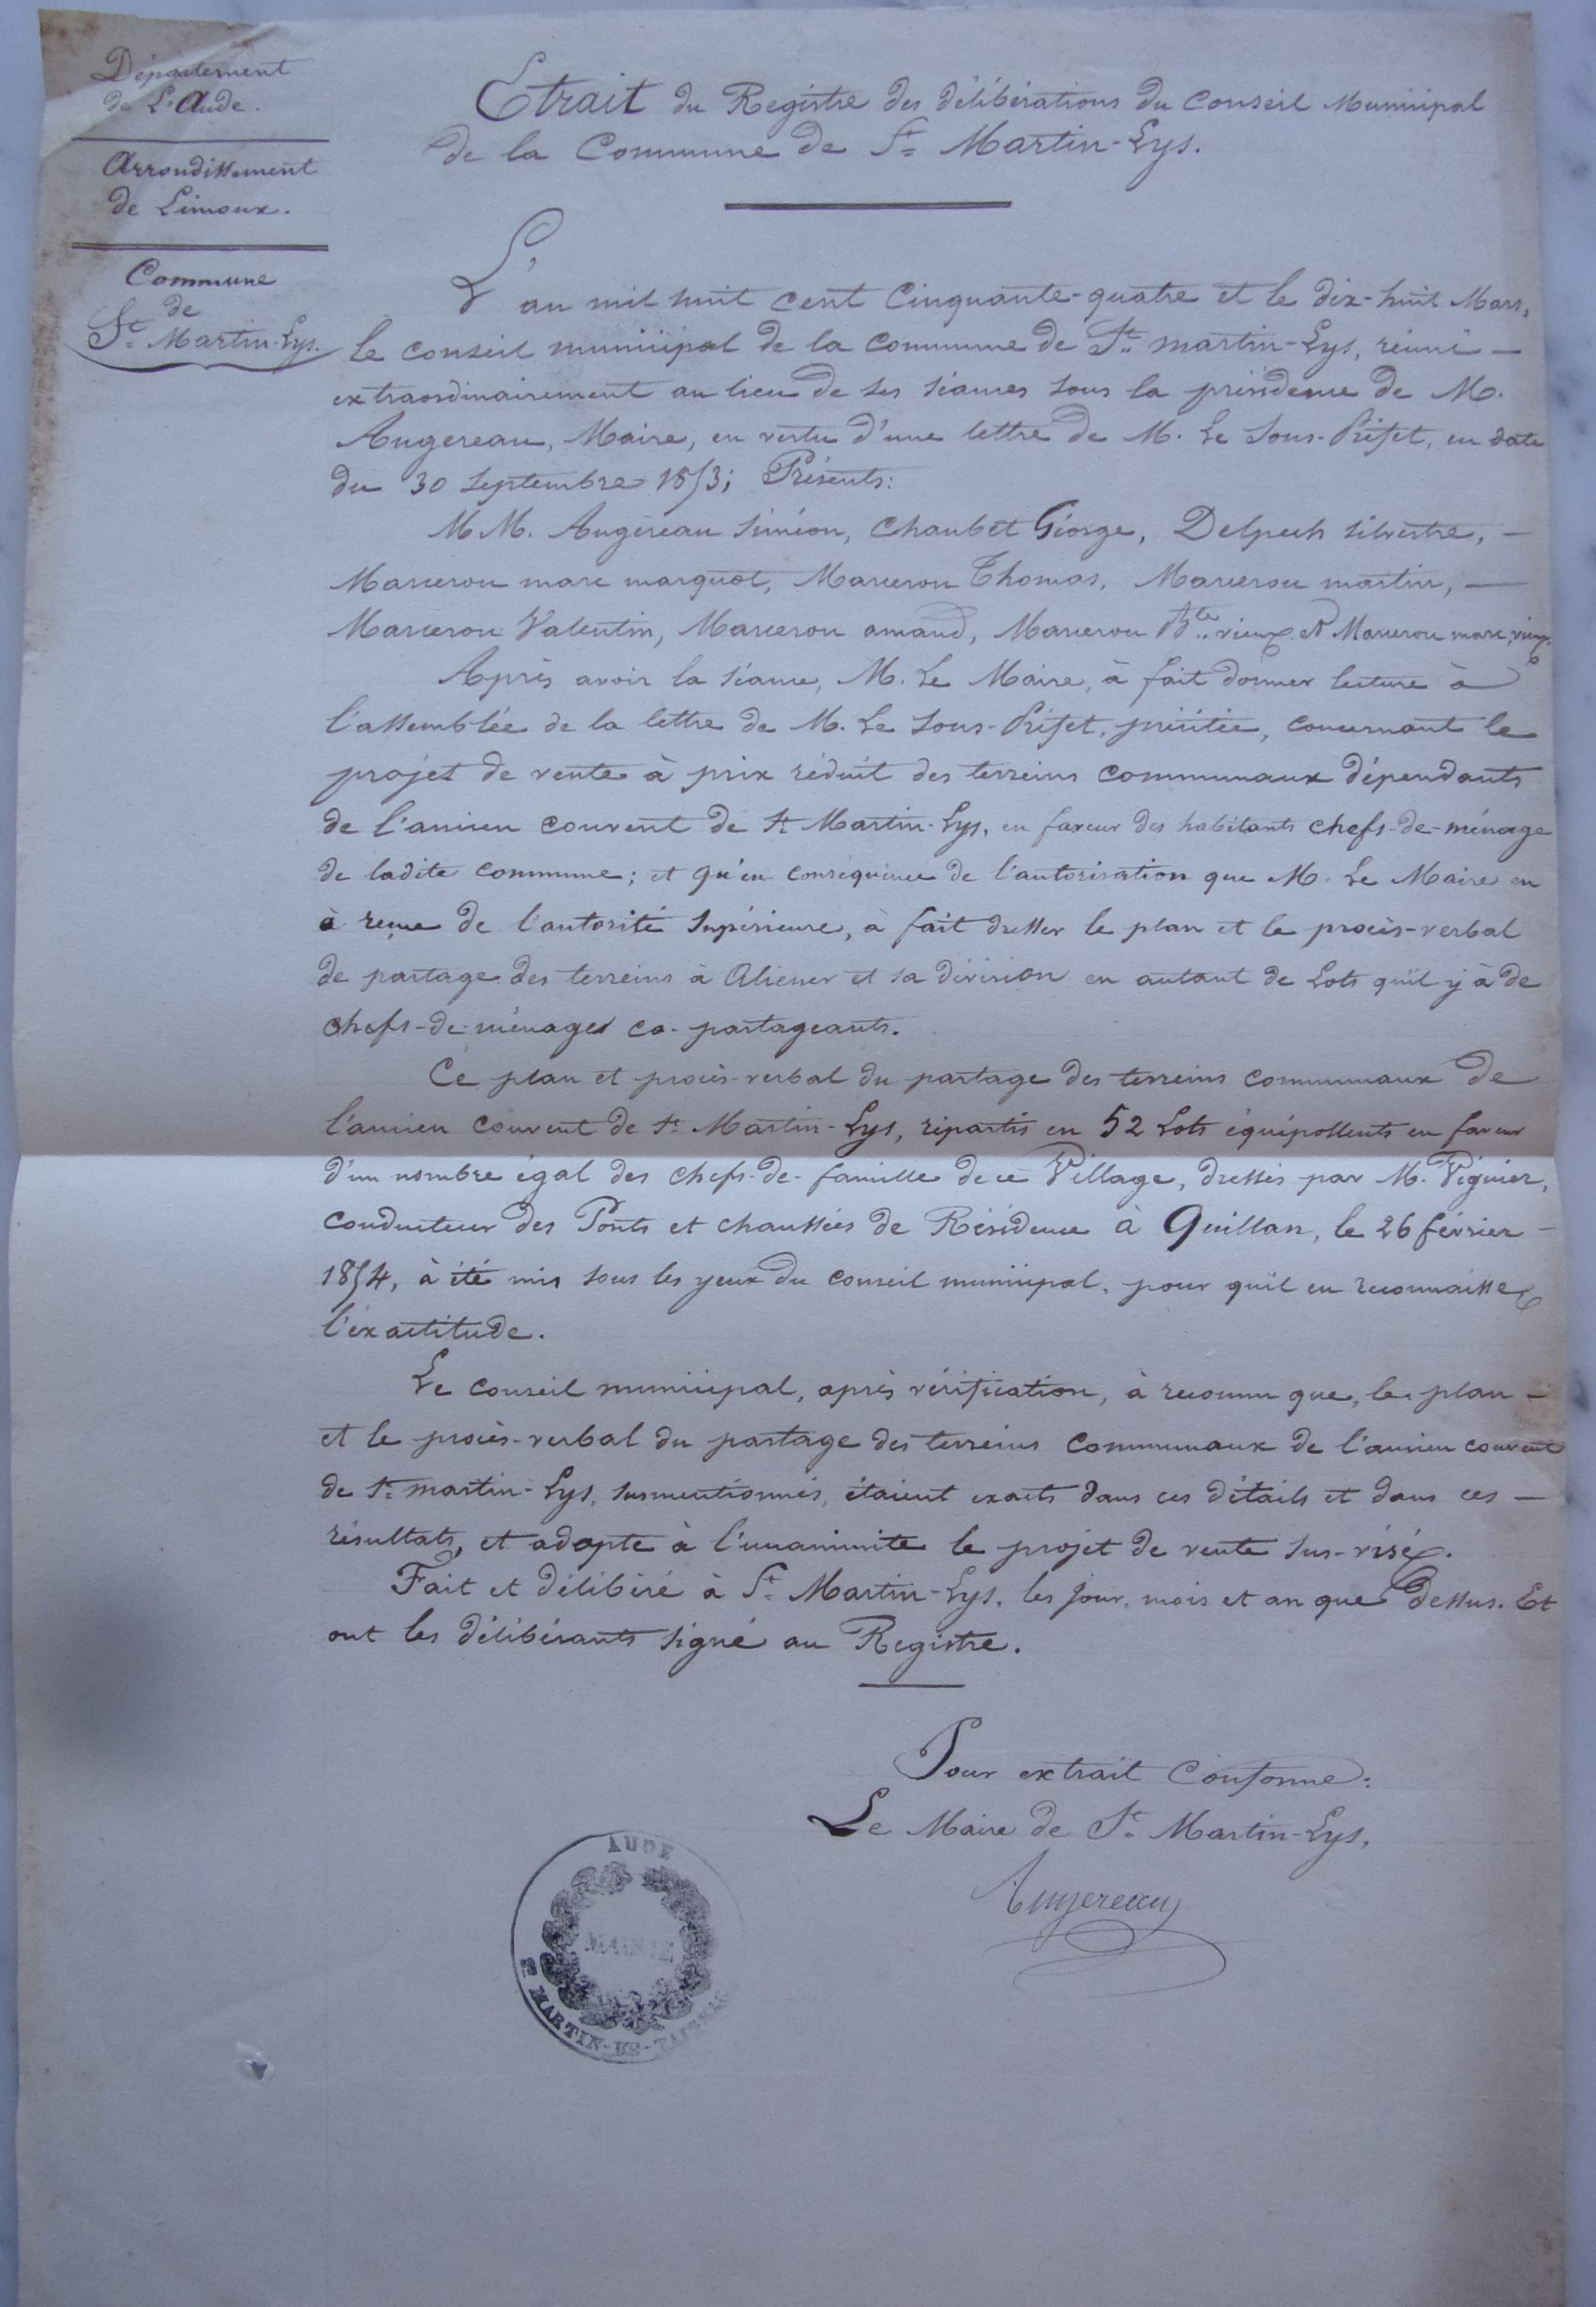 Département
de L'Aude.
Arrondissement
de Limoux.
Commune
de
St Martin-Lys.
Etrait du Registre des délibérations du Conseil Municipal
de la Commune de St Martin-Lys.
L'an mil huit cent Cinquante-quatre et le dix-huit Mars,
le Conseil municipal de la Commune de St martin-Lys, réuni —
extraordinairement au lieu de ses séances sous la présidence de M.
Augereau, Maire, en vertu d'une lettre de M. Le Sous-Préfet, en date
du 30 septembre 1853; Présents:
M M. Augereau Siméon, Chaubet George, Delpech silvestre, —
Marcerou marc marquot, Marcerou Thomas, Marcerou martin, —
Marcerou Valentin, Marcerou amand, Marcerou Bte vieux et Marcerou marc, vieux.
Après avoir la séance, M. Le Maire, à fait donner lecture à
l'assemblée de la lettre de M. Le Sous-Préfet, précitée, concernant le
projet de vente à prix réduit des terreins communaux dépendants
de l'ancien couvent de St Martin-Lys, en faveur des habitants chefs-de-ménage
de ladite commune; et qu'en conséquence de l'autorisation que M. Le Maire en
à reçue de l'autorité Supérieure, à fait dresser le plan et le procès-verbal
de partage des terreins à Aliener et sa division en autant de Lots qu'il y à de
chefs-de-ménages co-partageants.
Ce plan et procès-verbal du partage des terreins communaux de
l'ancien couvent de St Martin-Lys, répartis en 52 Lots équipollents en faveur
d'un nombre égal des chefs-de-famille de ce Village, dressés par M. Viguier,
conducteur des Ponts et chaussées de Résidence à Quillan, le 26 février —
1854, à été mis sous les yeux du conseil municipal, pour qu'il en reconnaisse
l'éxactitude.
Le conseil municipal, après vérification, à reconnu que, le plan —
et le procès-verbal du partage des terreins communaux de l'ancien couvent
de St martin-Lys, susmentionnés, étaient exacts dans ces détails et dans ces —
résultats, et adopte à l'unanimite le projet de vente sus-visé.
Fait et délibéré à St Martin-Lys, les jour, mois et an que Dessus. Et
ont les délibérants signé au Registre.
Pour extrait Conforme:
Le Maire de St Martin-Lys,
Augereau
AUDE
MAIRIE
St MARTIN-DE-